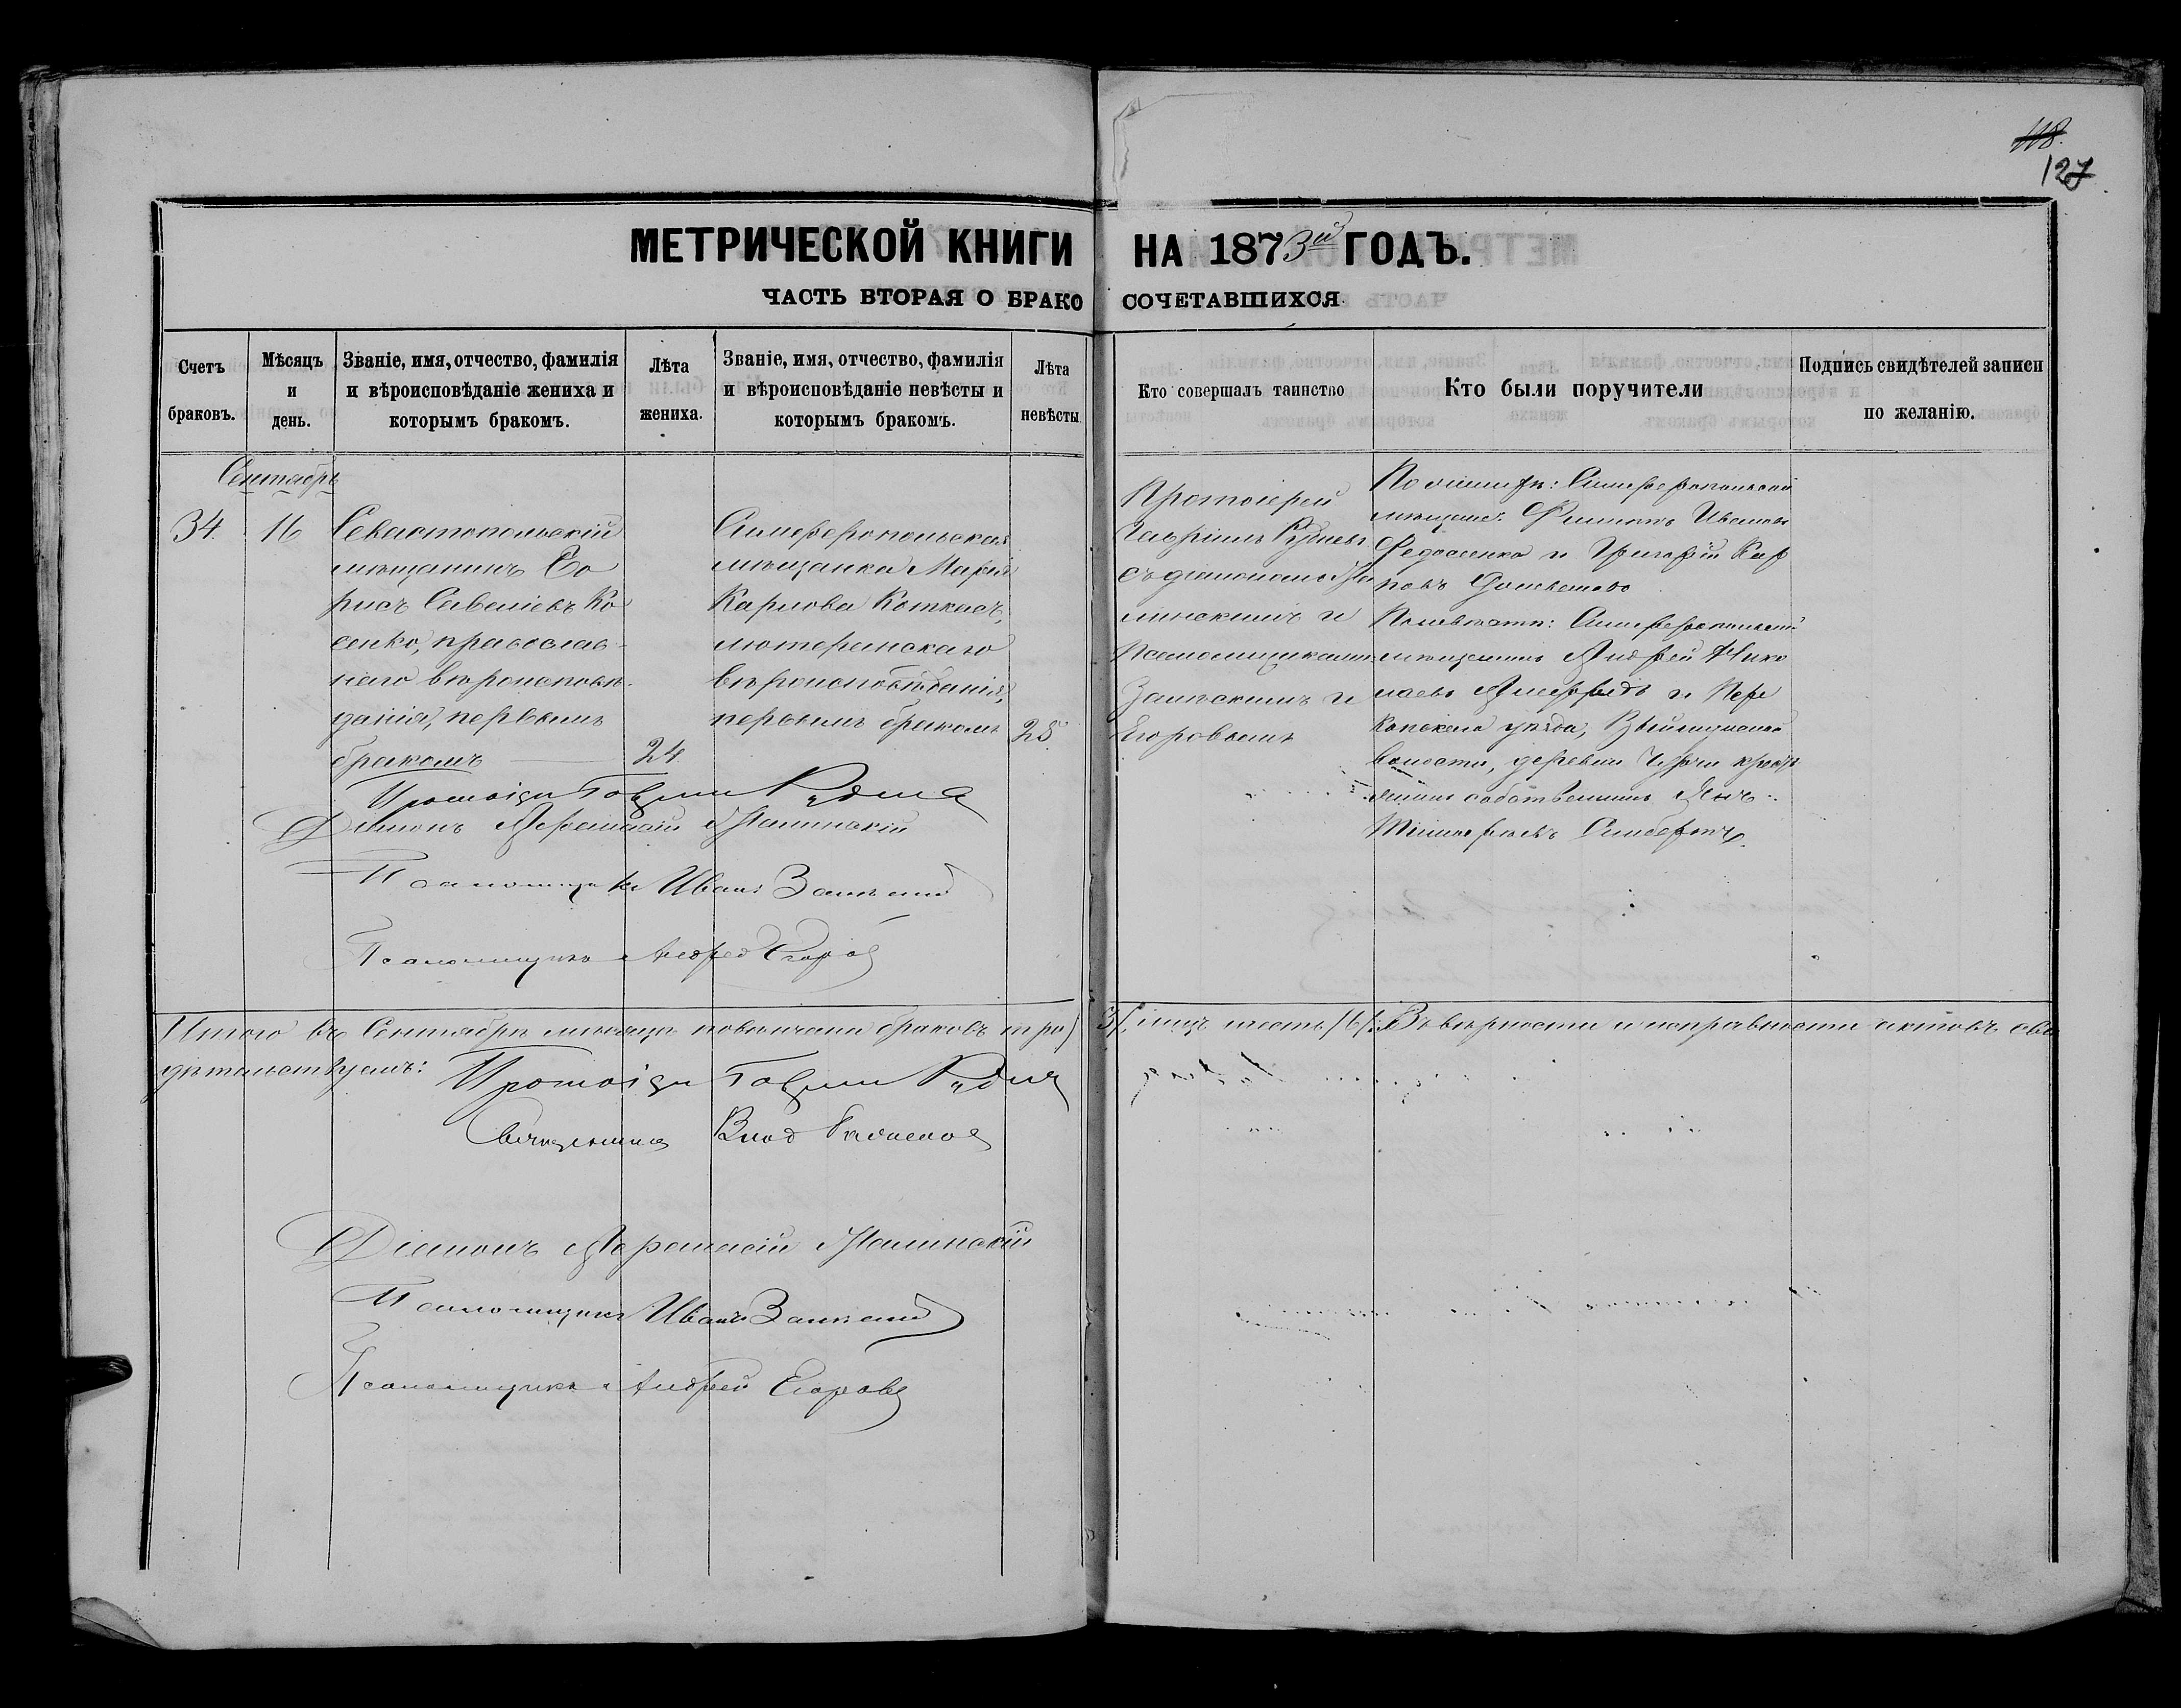 118.
127
МЕТРИЧЕСКОЙ КНИГИ НА 1873ій ГОДЪ.
ЧАСТЬ ВТОРАЯ О БРАКОСОЧЕТАВШИХСЯ
Счетъ браковъ.
Мѣсяцъ и день.
Званіе, имя, отчество, фамилія и вѣроисповѣданіе жениха и которымъ бракомъ.
Лѣта жениха.
Званіе, имя, отчество, фамилія и вѣроисповѣданіе невѣсты и которымъ бракомъ.
Лѣта невѣсты
Кто совершалъ таинство
Кто были поручители
Подпись свидѣтелей записи по желанію.
Сентябрь
34. 16
Севастопольскій
мѣщанинъ Бо
рисъ Савеліевъ Ко
сенко, православ-
наго вѣроисповѣ-
данія, первымъ
бракомъ
24
Симферопольская
мѣщанка Марія
Карлова Коткасъ,
лютеранскаго
вѣроисповѣданія,
первымъ бракомъ
25.
Протоіерей
Гавріилъ Рудневъ
съ діакономъ
и
Псаломщиками
Заинскимъ и
Егоровымъ
По женихѣ: Симферопольскій
мѣщане: Филипъ Ивановъ
Федосенко и Григорій Кар
повъ
По невѣстѣ: Симферопольскій
мѣщанинъ Андрей Нико
лаевъ и Пере
копскаго уѣзда,
волости, деревни
собственникъ Янъ
Протоіерей Гавріилъ Руднев
Діаконъ
Псаломщикъ Иванъ Заинскій
Псаломщикъ Андрей Егоров
Итого въ Сентябрѣ мѣсяцѣ повѣнчано браковъ три /3/, лицъ шесть /6/. Въ вѣрности и исправности актовъ сви
дѣтельствуемъ: Протоіерей Гавріилъ Руднев
Священникъ Влад.
Діаконъ
Псаломщикъ Иванъ Заинскій
Псаломщикъ Андрей Егоровъ